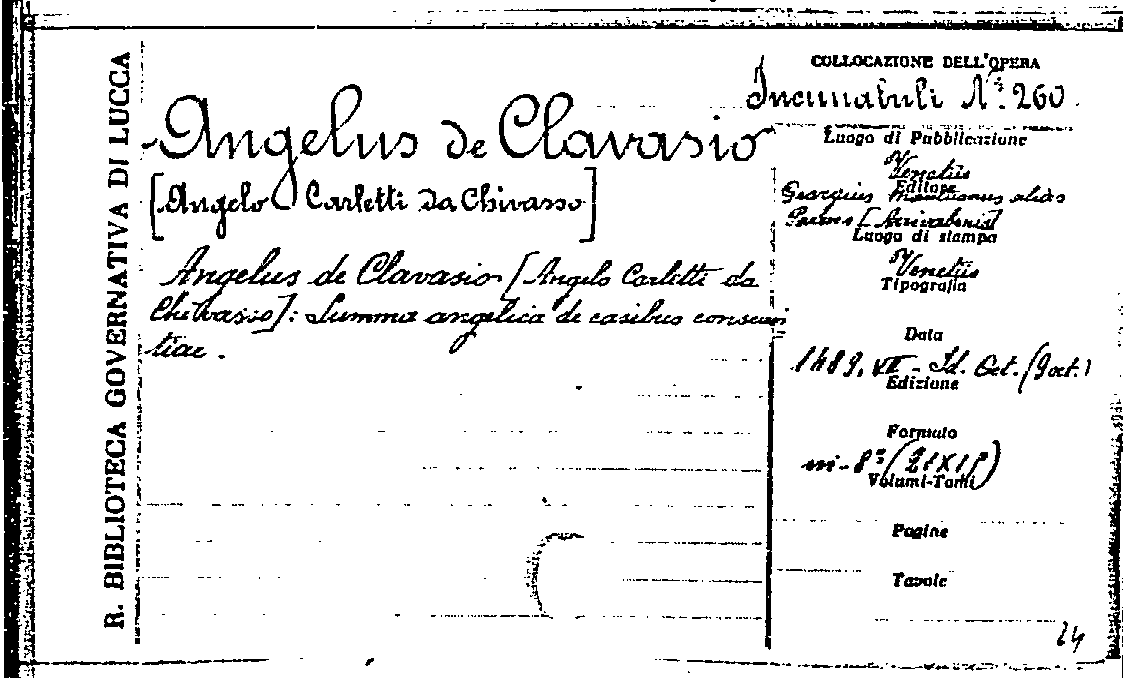 R. BIBLIOTECA GOVERNATIVA DI LUCCA
Angelus de Clavasio
[Angelo Carletti da Chivasso]
Angelus de Clavasio [Angelo Carletti da
Chivasso]: Summa angelica de casibus conscien
tiae.
COLLOCAZIONE DELL'OPERA
Incunabuli N.º 260.
Luogo di Pubblicazione
Venetiis
Editore
Georgius Mantuanus alias
[Arrivabenis]
Luogo di stampa
Venetiis
Tipografia
Data
1489. VII - Id. Oct. (9 oct.)
Edizione
Formato
in-8º
Volumi-Tomi
Pagine
Tavole
24